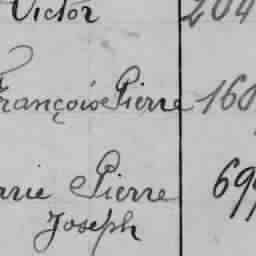 Victor 204
François Pierre 160
arie Pierre 699
Joseph